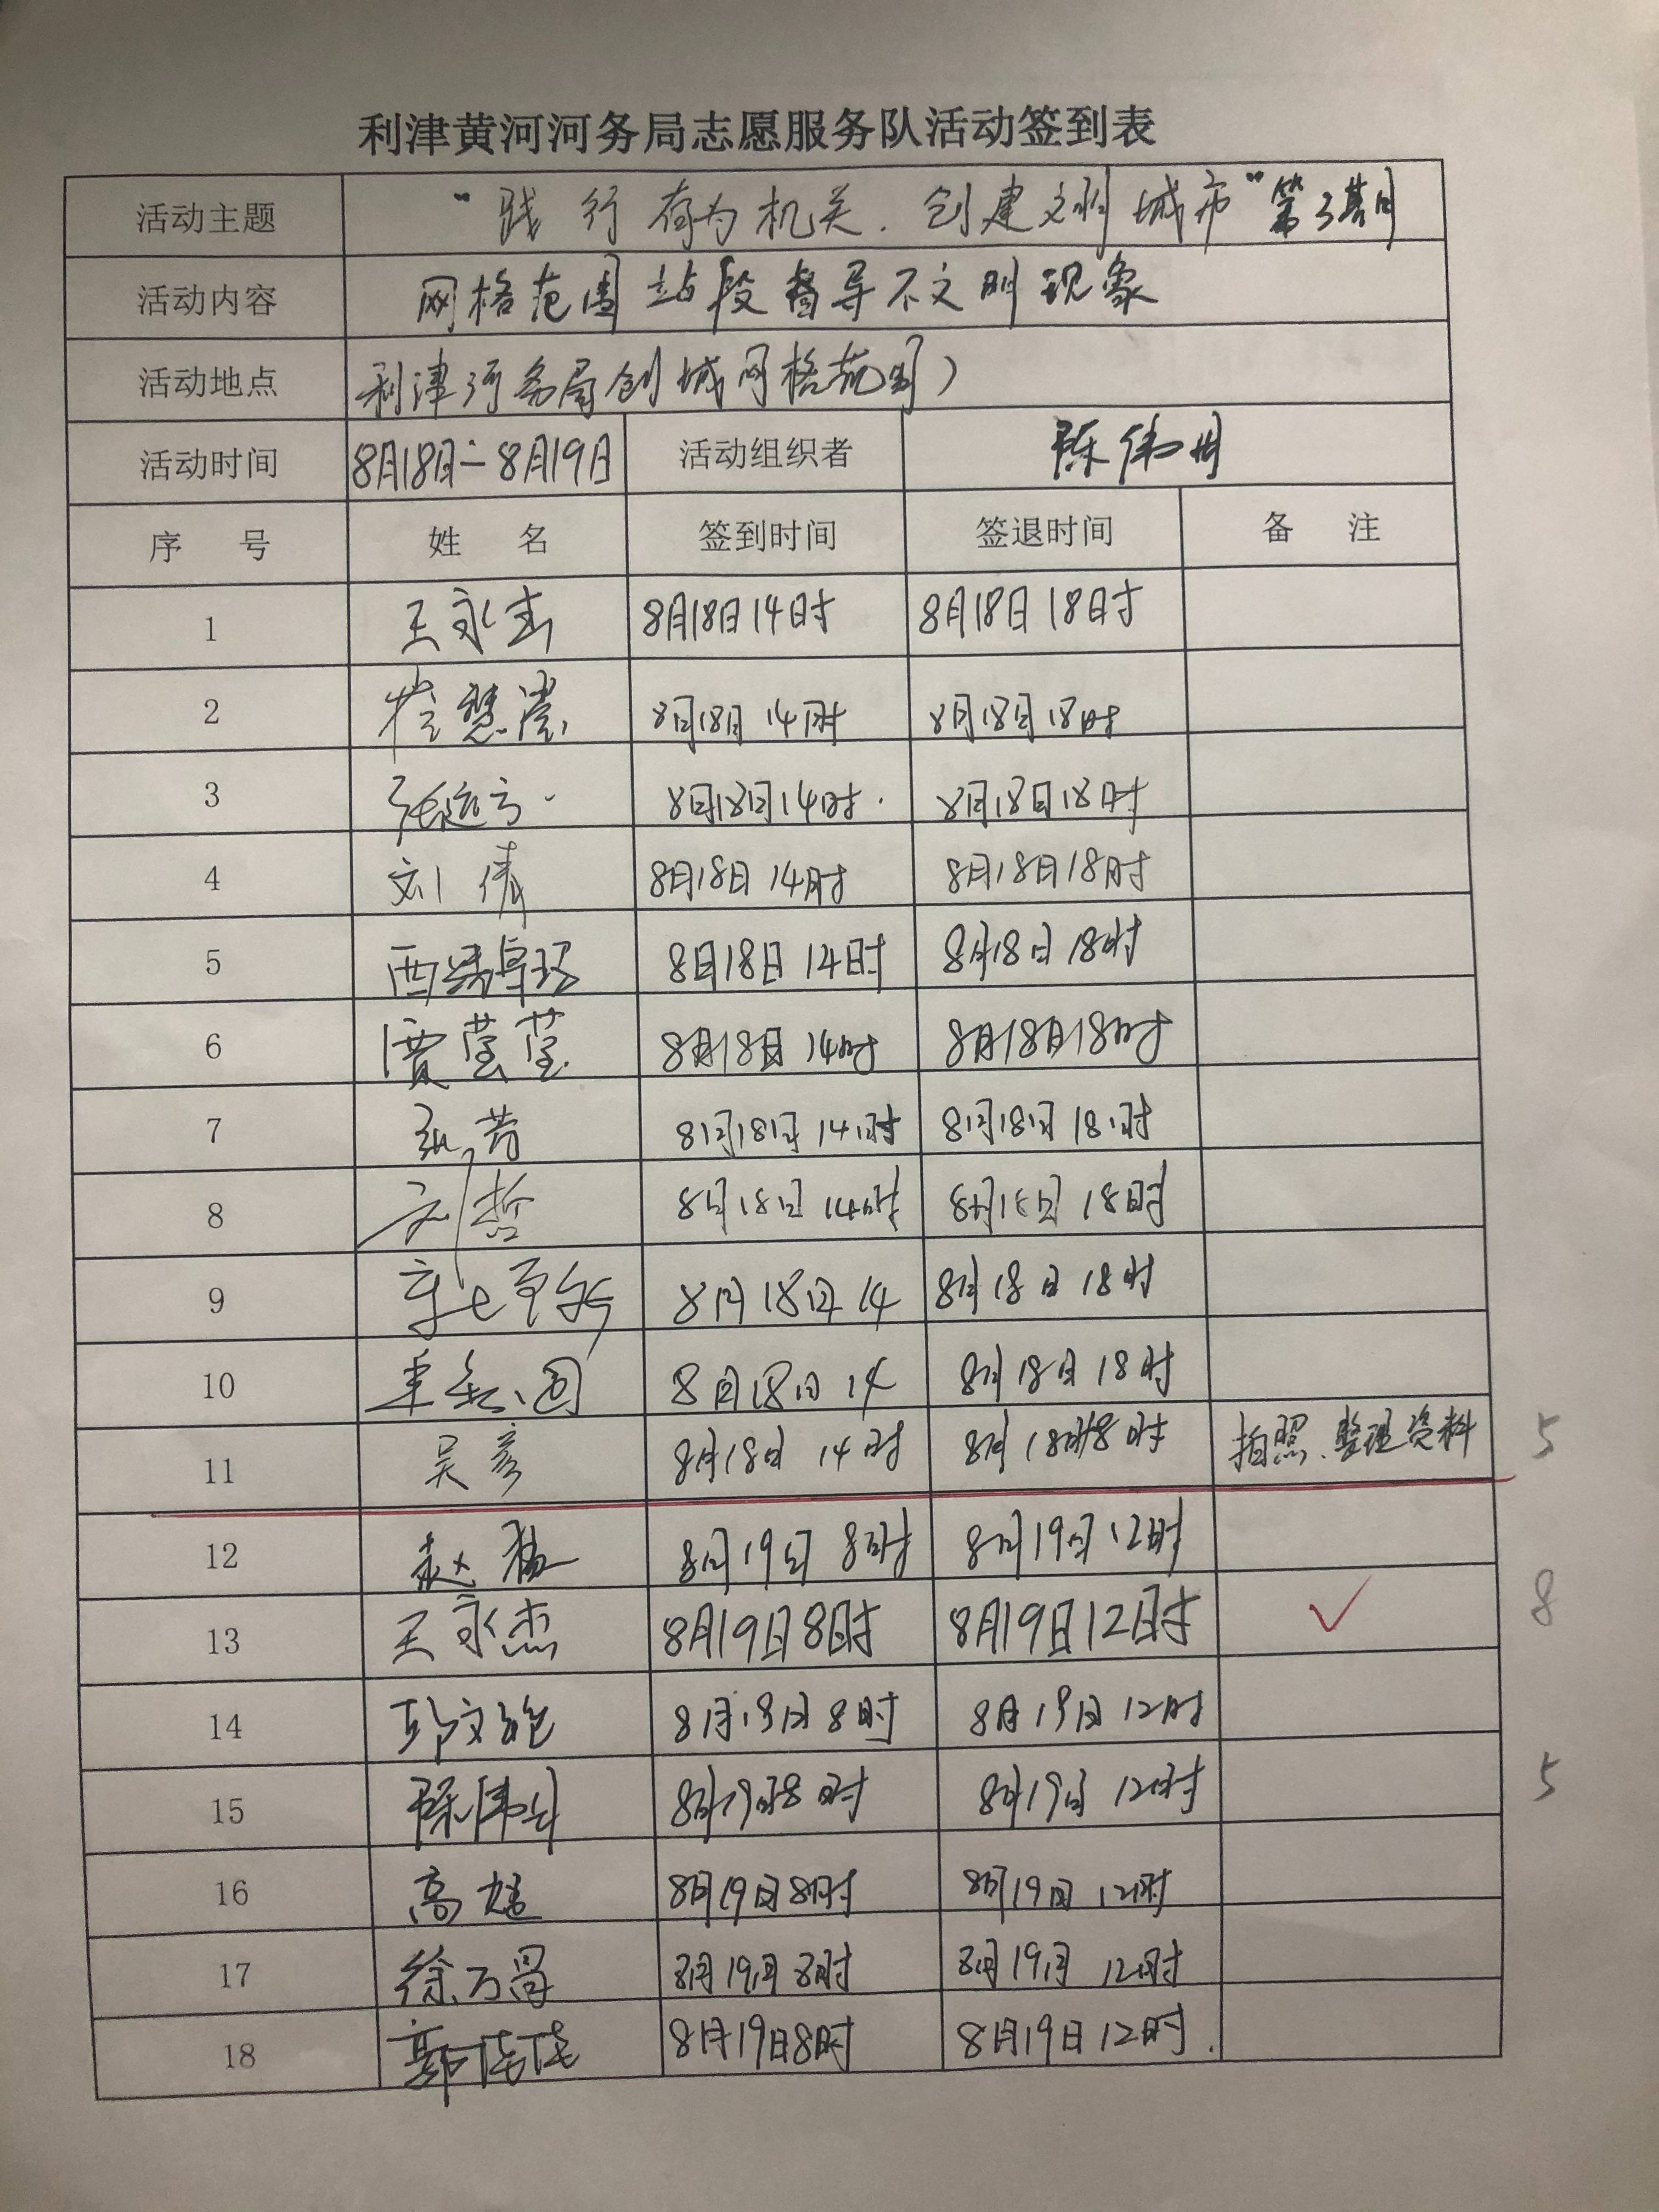 利津黄河河务局志愿服务队活动签到表
活动主题 “践行有为机关.创建文明城市”第3期
活动内容 网格范围站段督导不文明现象
活动地点 利津河务局创城网格范围)
活动时间 8月18日-8月19日 活动组织者 陈伟
序 号 姓 名 签到时间 签退时间 备 注
1 王永杰 8月18日14时 8月18日18时
2 8月18日14时 8月18日18时
3 张远方 8月18日14时 8月18日18时
4 刘倩 8月18日14时 8月18日18时
5 西绕卓玛 8月18日14时 8月18日18时
6 贾莹莹 8月18日14时 8月18日18时
7 8月18日14时 8月18日18时
8 刘哲 8月18日14时 8月18日18时
9 8月18日14 8月18日18时
10 8月18日14 8月18日18时
11 吴彦 8月18日14时 8月18日18时 拍照、整理资料 5
12 赵 8月19日8时 8月19日12时
13 王永杰 8月19日8时 8月19日12时 ✓ 8
14 8月19日8时 8月19日12时
15 陈伟 8月19日8时 8月19日12时 5
16 高 8月19日8时 8月19日12时
17 徐万 8月19日8时 8月19日12时
18 郭 8月19日8时 8月19日12时.